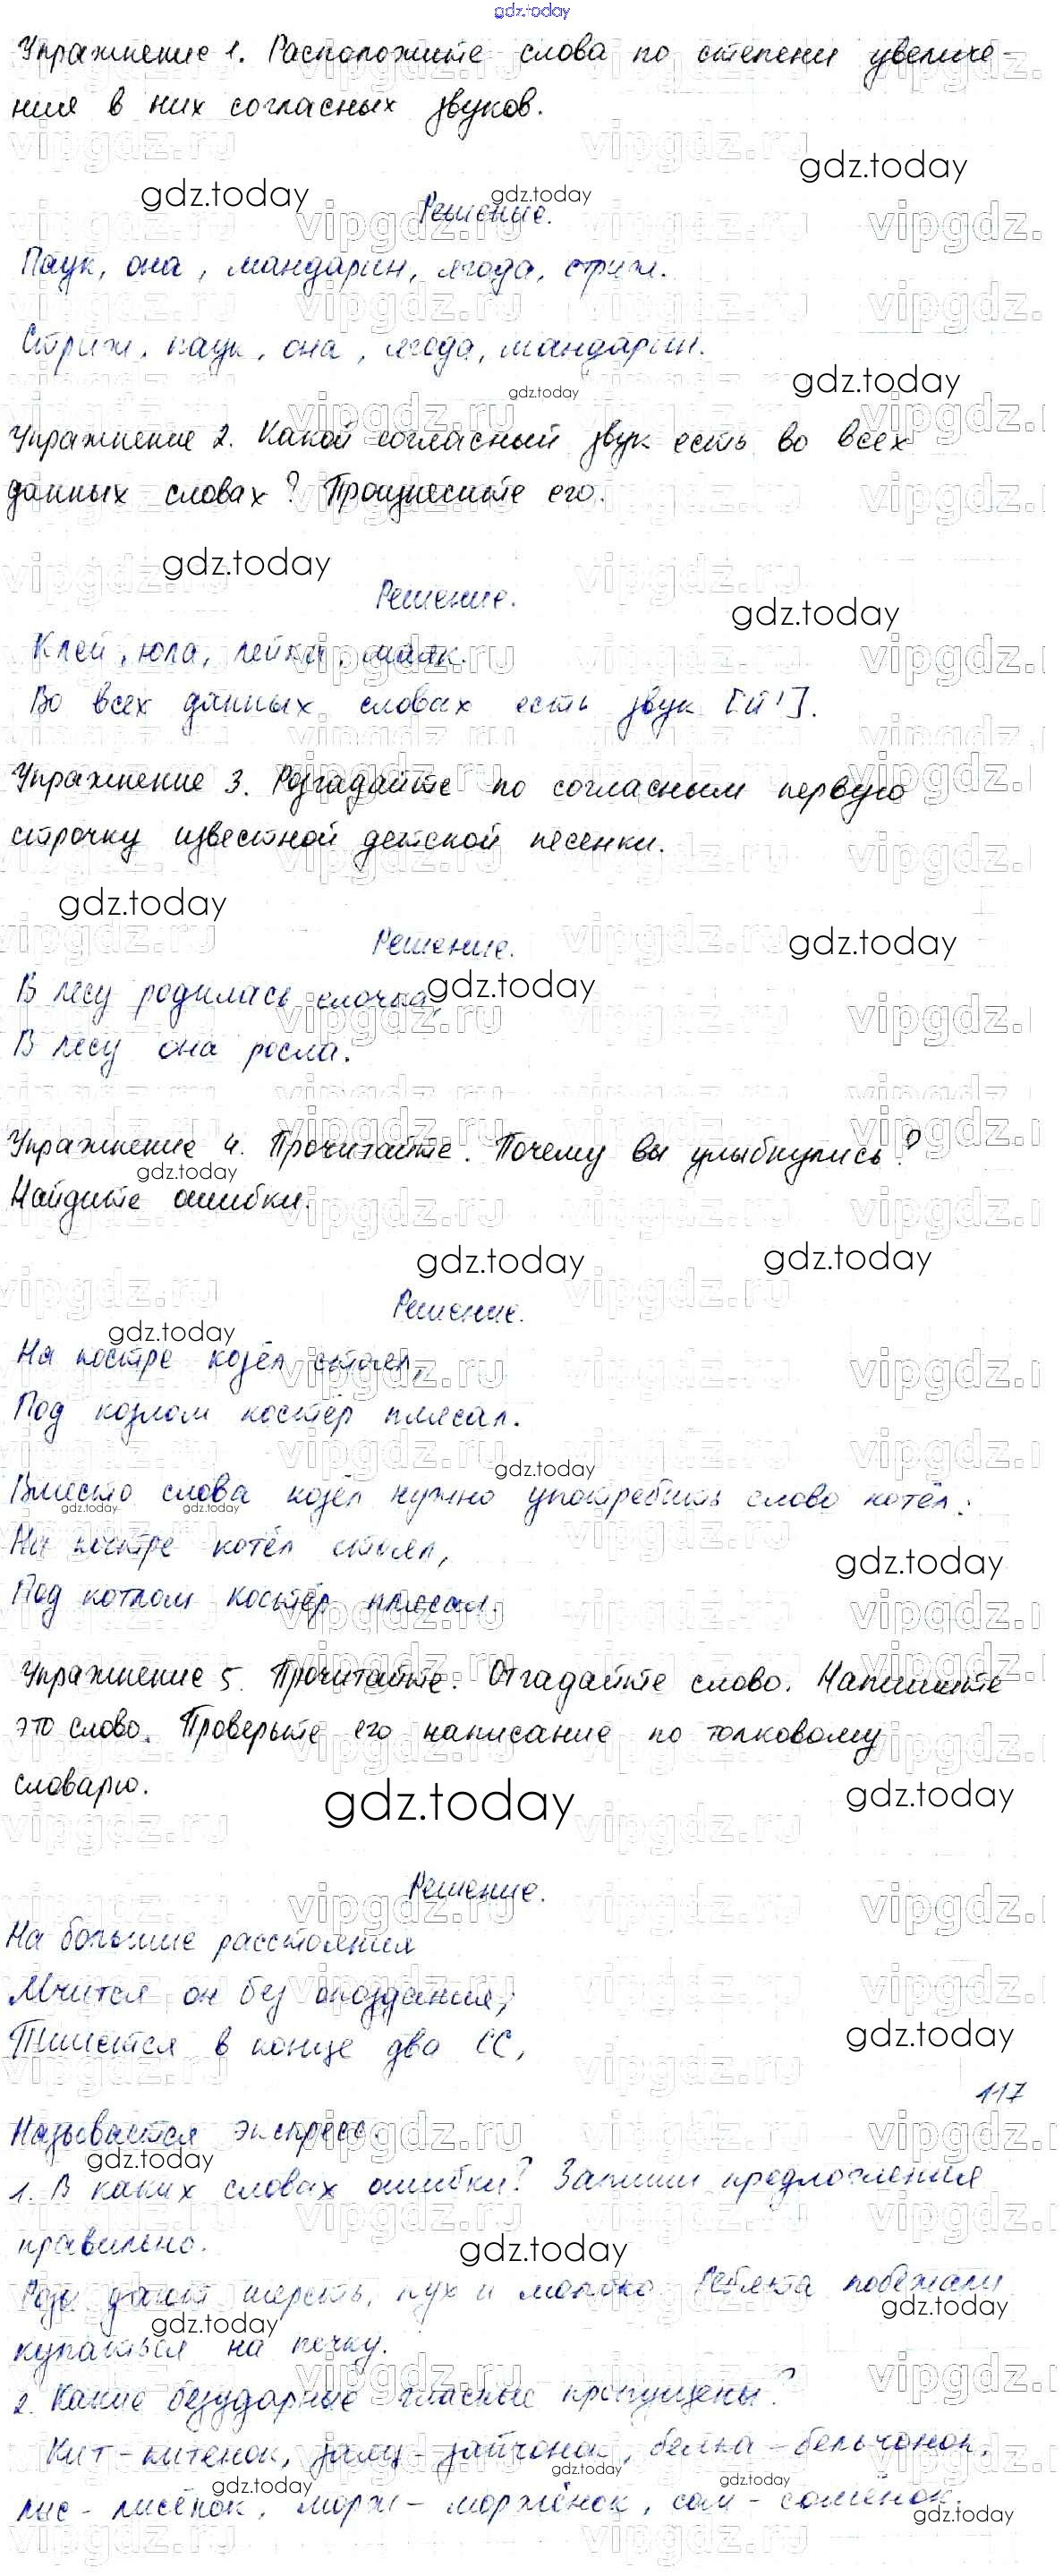 gdz.today
Упражнение 1. Расположите слова по степени увеличе-
ния в них согласных звуков.
gdz.today
gdz.today gdz.today
Решение.
Паук, она, мандарин, ягода, стриж.
Стриж, паук, она, ягода, мандарин.
gdz.today gdz.today
Упражнение 2. Какой согласный звук есть во всех
данных словах? Произнесите его.
gdz.today
Решение.
gdz.today
Клей, юла, лейка, маяк.
Во всех данных словах есть звук [й'].
Упражнение 3. Разгадайте по согласным первую
строчку известной детской песенки.
gdz.today
Решение.
gdz.today
В лесу родилась ёлочка, gdz.today
В лесу она росла.
Упражнение 4. Прочитайте. Почему вы улыбнулись?
gdz.today
Найдите ошибки.
gdz.today gdz.today
Решение.
gdz.today
На костре козёл стоял,
Под козлом костёр плясал.
gdz.today
Вместо слова козёл нужно употребить слово котёл:
gdz.today gdz.today
На костре котёл стоял,
gdz.today
Под котлом костёр плясал.
Упражнение 5. Прочитайте. Отгадайте слово. Напишите
это слово. Проверьте его написание по толковому
словарю.
gdz.today gdz.today
Решение.
На большие расстояния
Мчится он без опоздания,
Пишется в конце два СС,
gdz.today
117
Называется экспресс.
gdz.today
1. В каких словах ошибки? Запиши предложения
правильно.
gdz.today
дают шерсть, пух и молоко. Ребята побежали
gdz.today gdz.today
купаться на печку.
2. Какие безударные гласные пропущены?
Кит - китёнок, заяц - зайчонок, белка - бельчонок,
gdz.today gdz.today gdz.today
лис - лисёнок, морж - моржонок, сом - сомёнок.
gdz.today